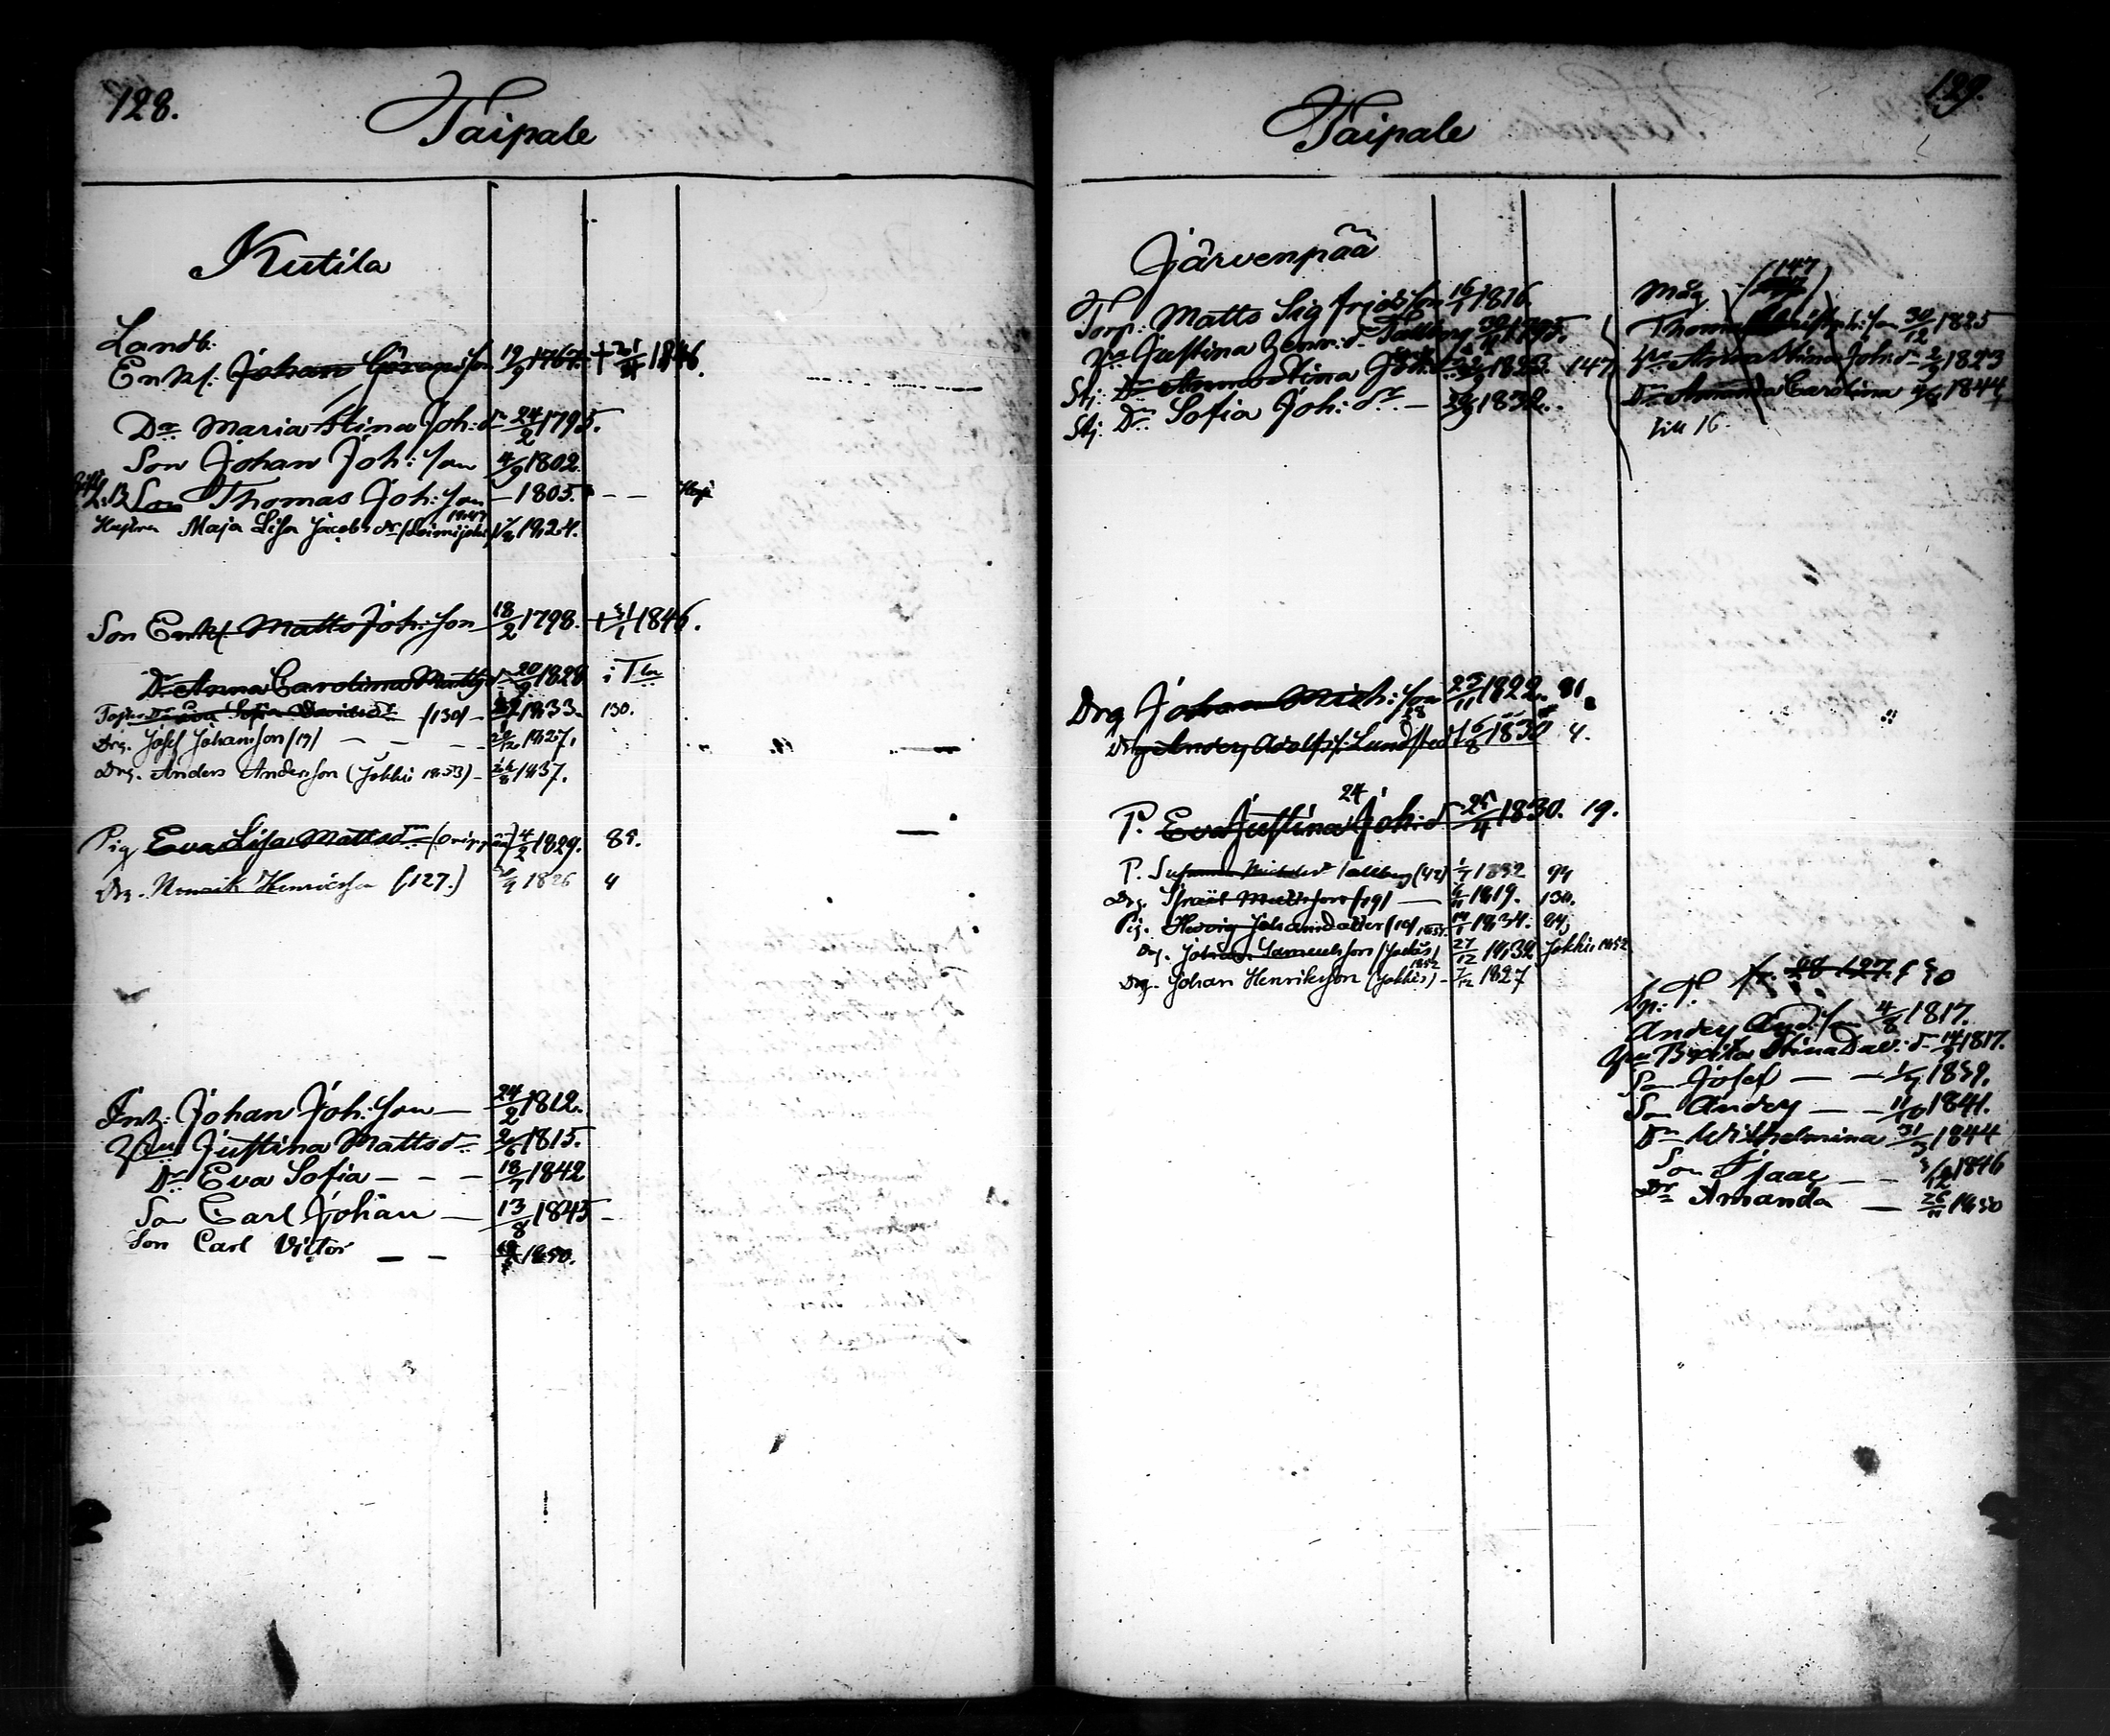 128.
Taipale
Kutila
Landb:
Enkl. Johan Göransson 19/9 1767. + 21/11 1846.
Dr. Maria Stina Joh:dr 24/2 1795.
Son Johan Joh:son 4/9 1802.
L.B. Son Thomas Joh:son — 1805. — —
Hustru Maja Lisa Jacobsdr (Loimijoki 1847) 1824.
Son Enkl. Matts Joh:son 18/2 1798. + 31/1 1846.
Dr Anna Carolina Mattsdr 20/9 1828 i
Eva Sofia Davidsdr (130) — 1833. 130.
Drg. Josef Johansson (19) — — — 1827.
Drg. Anders Andersson (Jokkis 1853) — 1837.
Pig Eva Lisa Mattsdr 4/2 1829. 85.
Drg. Henrik Henricsson (127.) 1826 4
Inh: Johan Joh:son — 24/2 1812.
Hu Justina Mattsdr 2/6 1815.
Dr Eva Sofia — — — 18/7 1842
Son Carl Johan — 13/8 1845
Son Carl Victor — — 1850.
129.
Taipale
Järvenpää
Torp: Matts Sigfridsson 16/1 1816.
Hu Justina Henr:dr 1795.
Stj: Dr Anna Stina Joh:dr 1823. 147
Stj. Dr Sofia Joh:dr — 1832.
Drg Johan Mich:son 25/11 1822. 81.
Drg Anders Adolfsson Lundstedt 6/8 1830 4.
24
P. Eva Justina Joh:dr 25/4 1830. 19.
P. Susanna (42) 1/7 1832 94
Drg. Israel Mattsson (19) — 1819. 130.
Pig. Hedvig Johansdotter 1834. 94
Drg. Johan Samuelsson 27/12 1832 Jokkis 1852
Drg. Johan Henriksson (Jokkis 1852) — 7/12 1827
Måg (147)
Thomas 30/12 1825
Hu Anna Stina Joh:dr 2/3 1823
Dr Amanda Carolina 1844
till 16.
127
Anders And:son 4/8 1817.
Hu Brita Stina Dav:dr 1817.
Son Josef — — 1839.
Son Anders — — 11/10 1841.
Dr Wilhelmina 31/3 1844
Son Isaac — — 1846
Dr Amanda — 26/11 1850